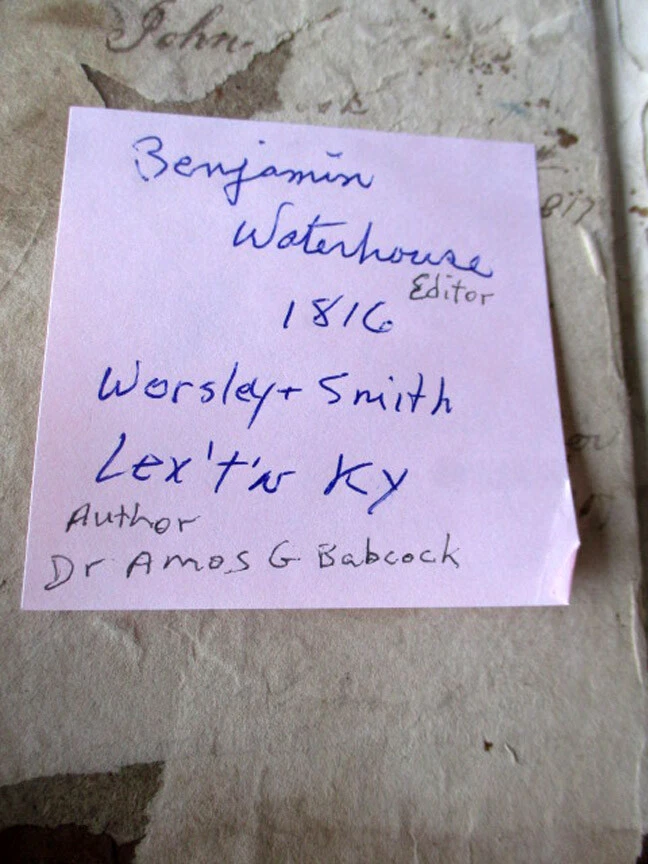 John
Benjamin
Waterhouse
Editor
1816
Worsley + Smith
Lex't'n Ky
Author
Dr Amos G Babcock